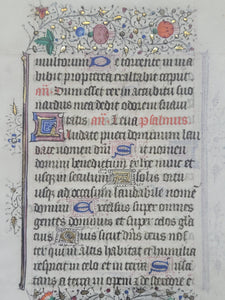 multorum De torrente in via
bibit propterea exaltabit caput
añ Dum esset rex in accubitu suo
nardus mea dedit odorem suavi
tatis añ Leva psalmus
Laudate pueri dominum lau
date nomen dñi Sit nomen
domini benedictum ex hoc nunc et
usque in seculum
usque ad occasum laudabile nomen
domini Excelsus super omnes
gentes dominus et super celos gloria
eius Quis sicut dñs deus nos
ter qui in altis habitat et humilia
respicit in celo et in terra Sus
citans a terra inopem et de stercore